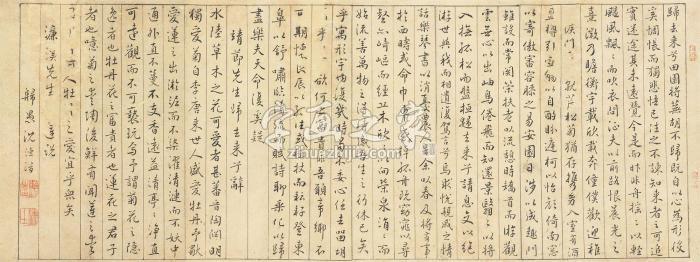 歸去來兮田園將蕪胡不歸既自以心為形役
奚惆悵而獨悲悟已往之不諫知來者之可追
實迷途其未遠覺今是而昨非舟搖搖以輕
颺風飄飄而吹衣問征夫以前路恨晨光之
熹微乃瞻衡宇載欣載奔僮僕歡迎稚
候門 就 松菊猶存攜 入室有酒
盈樽引壺觴以自酌眄庭柯以怡顏倚南窗
以寄傲審容膝之易安園日涉以成趣門
雖設而常關策扶老以流憩時矯首而遐觀
雲無心以出岫鳥倦飛而知還景翳翳以將
入撫孤松而盤桓歸去來兮請息交以絕
游世與我而相遺復駕言兮焉求悅親戚之情
話樂琴書以消憂農 余以春及將有事
於西疇或命巾 孤舟既窈窕以尋
壑亦崎嶇而經丘木欣 向榮泉涓涓而
始流善萬物之 生之行休已矣
乎寓形宇內復幾時曷 委心任去留胡
乎 欲何 吾願帝鄉不
可期懷良辰以 或植杖而耘耔登東
皋以舒嘯臨 賦詩聊乘化以歸
盡樂夫天命復奚疑
靖節先生歸去來兮辭
水陸草木之花可愛者甚蕃晉陶淵明
獨愛菊自李唐來世人盛愛牡丹予獨
愛蓮之出淤泥而不染濯清漣而不妖中
通外直不蔓不支香遠益清亭亭淨直
可遠觀而不可褻玩予謂菊花之隱
逸者也牡丹花之富貴者也蓮花之君子
者也噫菊之愛陶後鮮有聞蓮之愛
人牡 之愛宜乎眾矣
濂溪先生 蓮說
歸愚沈德潛
字画之家